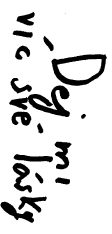 Dej mi
víc své lásky